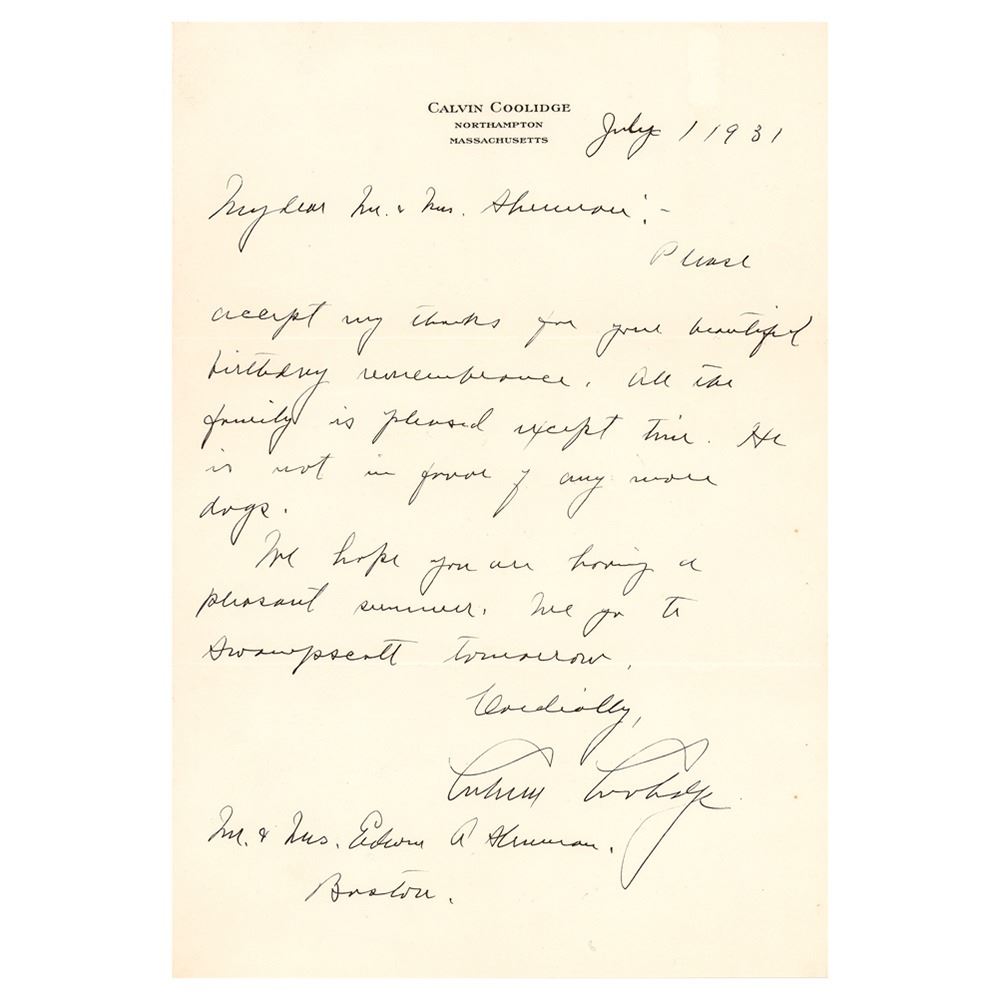 CALVIN COOLIDGE
NORTHAMPTON
MASSACHUSETTS
July 1 1931
My dear Mr. & Mrs. Sherman:-
Please
accept my thanks for your beautiful
birthday remembrance. All the
family is pleased except Tim. He
is not in favor of any more
dogs.
We hope you are having a
pleasant summer. We go to
Swampscott tomorrow.
Cordially,
Calvin Coolidge
Mr. & Mrs. Edwin A Sherman.
Boston.